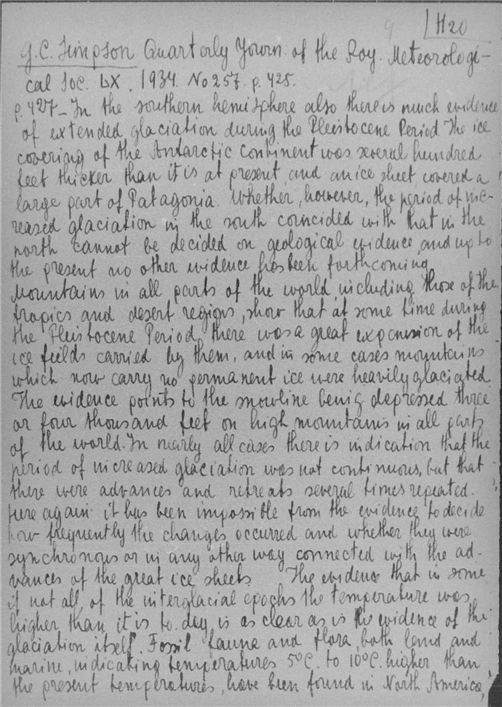 H20
G.C. Simpson Quarterly Journ. of the Roy. Meteorologi-
cal Soc. LX, 1934 No 257. p. 425.
p. 427 - In the southern hemisphere also there is much evidence
of extended glaciation during the Pleistocene Period. The ice
covering of the Antarctic continent was several hundred
feet thicker than it is at present and an ice sheet covered a
large part of Patagonia. Whether, however, the period of inc-
reased glaciation in the south coincided with that in the
north cannot be decided on geological evidence, and up to
the present no other evidence has been forthcoming
Mountains in all parts of the world, including those of the
tropics and desert regions, show that at some time during
the Pleistocene Period, there was a great expansion of the
ice fields carried by them, and in some cases mountains
which now carry no permanent ice were heavily glaciated.
The evidence points to the snowline being depressed three
or four thousand feet on high mountains in all parts
of the world. In nearly all cases there is indication that the
period of increased glaciation was not continuous, but that
there were advances and retreats several times repeated.
Here again it has been impossible from the evidence to decide
how frequently the changes occurred and whether they were
synchronous or in any other way connected with the ad-
vances of the great ice sheets. The evidence that in some
if not all of the interglacial epochs the temperature was
higher than it is to day, is as clear as is the evidence of the
glaciation itself. Fossil fauna and flora, both land and
marine, indicating temperatures 5°C. to 10°C. higher than
the present temperatures, have been found in North America,